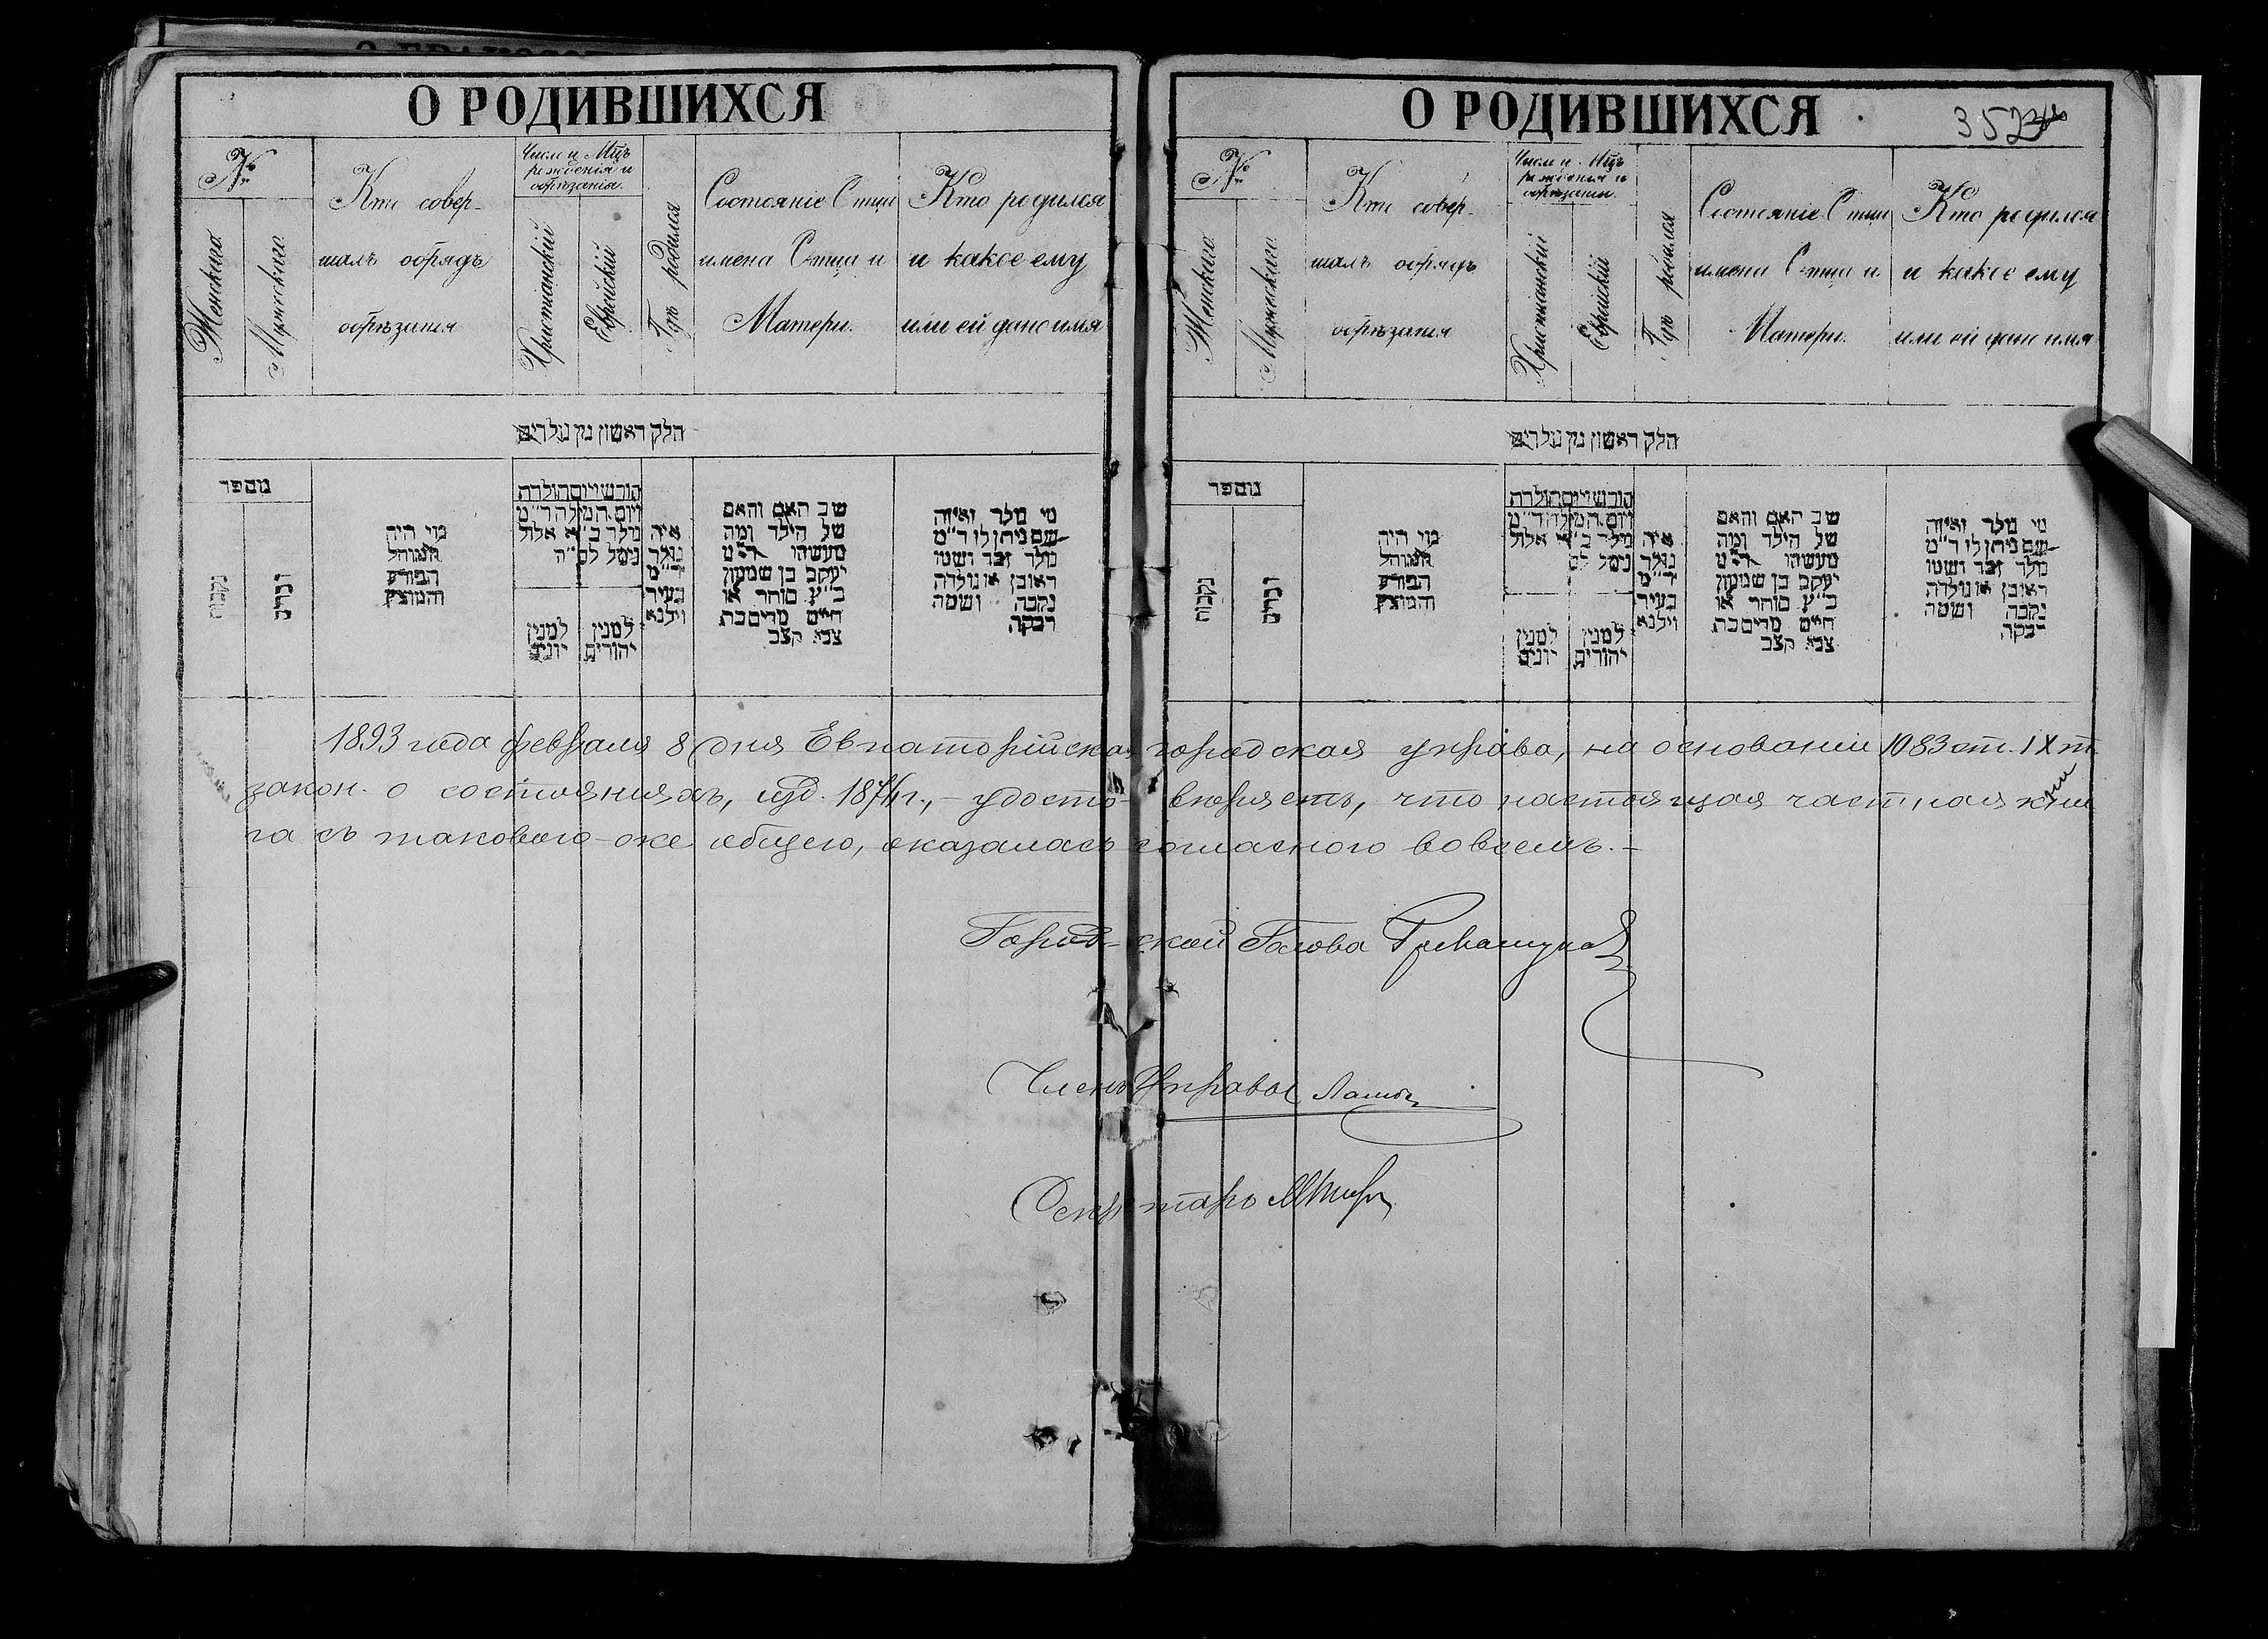 О РОДИВШИХСЯ
№
Женскаго
Мужскаго
Кто совер-
шалъ обрядъ
обрѣзанія
Число и Мцъ
рожденія и
обрѣзанія.
Христіанскій
Еврейскій
Гдѣ родился
Состояніе Отца
имена Отца и
Матери.
Кто родился
и какое ему
или ей дано имя
חלק ראשון מן נולדים
מספר
נקבות
זכרים
מי היה
המוהל
הפורע
והמוצץ
חודש ויום הולדת
ויום המילה ד"מ
נולד ב"א אלול
נימל לס"ה
למנין
יונים
למנין
יהודים
איה
נולד
ד"מ
בעיר
וילנא
שב האם והאם
של הילד ומה
מעשהו ד"מ
יעקב בן שמעון
כ"ץ סוחר או
חיים מרים בת
צבי קצב
מי נולד ואיזה
שם ניתן לו ד"מ
נולד זכר ושמו
ראובן או נולדה
נקבה ושמה
רבקה
О РОДИВШИХСЯ
352
№
Женскаго
Мужскаго
Кто совер-
шалъ обрядъ
обрѣзанія
Число и Мцъ
рожденія и
обрѣзанія.
Христіанскій
Еврейскій
Гдѣ родился
Состояніе Отца
имена Отца и
Матери.
Кто родился
и какое ему
или ей дано имя
חלק ראשון מן נולדים
מספר
נקבות
זכרים
מי היה
המוהל
הפורע
והמוצץ
חודש ויום הולדת
ויום המילה ד"מ
נולד ב"א אלול
נימל לס
למנין
יונים
למנין
יהודים
איה
נולד
ד"מ
בעיר
וילנא
שב האם והאם
של הילד ומה
מעשהו ד"מ
יעקב בן שמעון
כ"ץ סוחר או
חיים מרים בת
צבי קצב
מי נולד ואיזה
שם ניתן לו ד"מ
נולד זכר ושמו
ראובן או נולדה
נקבה ושמה
רבקה
1893 года февраля 8 дня Евпаторійская городская управа, на основаніи 1083 ст. IX т.
закон. о состояніяхъ, изд. 1876 г., - удосто- вѣряетъ, что настоящая частная кни
га съ таковою-же общею, оказалась согласною вовсемъ. -
Город- ской Голова
Членъ Управы
Секретарь